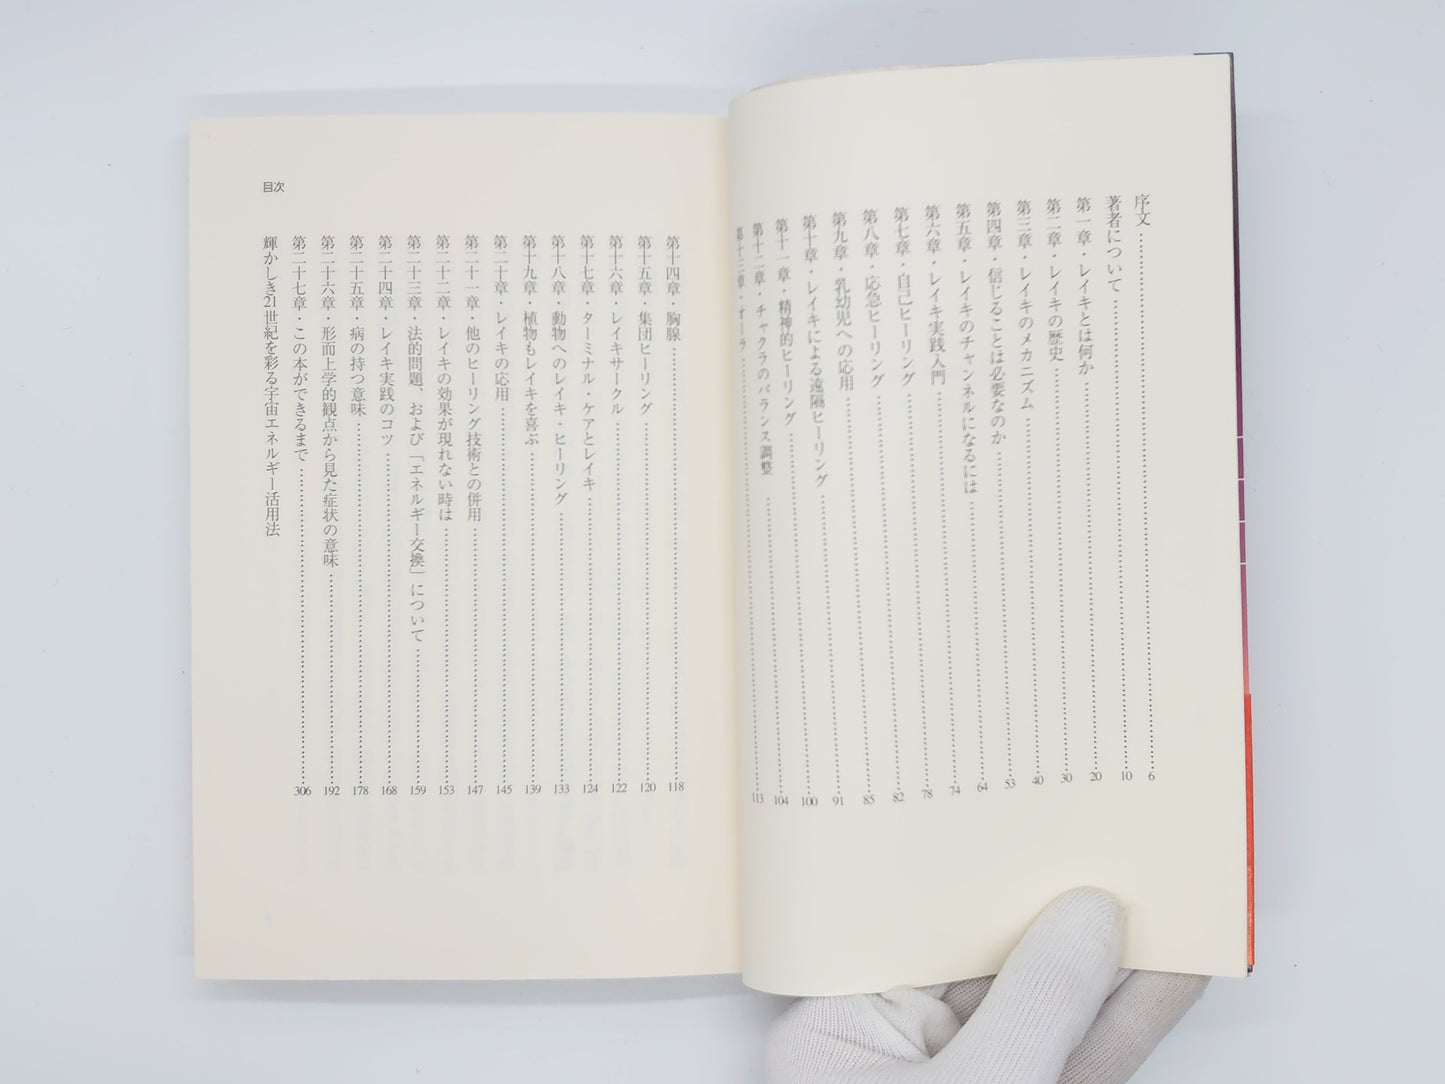 序文……6
著者について……10
第一章・レイキとは何か……20
第二章・レイキの歴史……30
第三章・レイキのメカニズム……40
第四章・信じることは必要なのか……53
第五章・レイキのチャンネルになるには……64
第六章・レイキ実践入門……74
第七章・自己ヒーリング……78
第八章・応急ヒーリング……82
第九章・乳幼児への応用……85
第十章・レイキによる遠隔ヒーリング……91
第十一章・精神的ヒーリング……100
第十二章・チャクラのバランス調整……104
第十三章・オーラ……113
第十四章・胸腺……118
第十五章・集団ヒーリング……120
第十六章・レイキサークル……122
第十七章・ターミナル・ケアとレイキ……124
第十八章・動物へのレイキ・ヒーリング……133
第十九章・植物もレイキを喜ぶ……139
第二十章・レイキの応用……145
第二十一章・他のヒーリング技術との併用……147
第二十二章・レイキの効果が現れない時は……153
第二十三章・法的問題、および「エネルギー交換」について……159
第二十四章・レイキ実践のコツ……168
第二十五章・病の持つ意味……178
第二十六章・形而上学的観点から見た症状の意味……192
第二十七章・この本ができるまで……306
輝かしき21世紀を彩る宇宙エネルギー活用法
目次